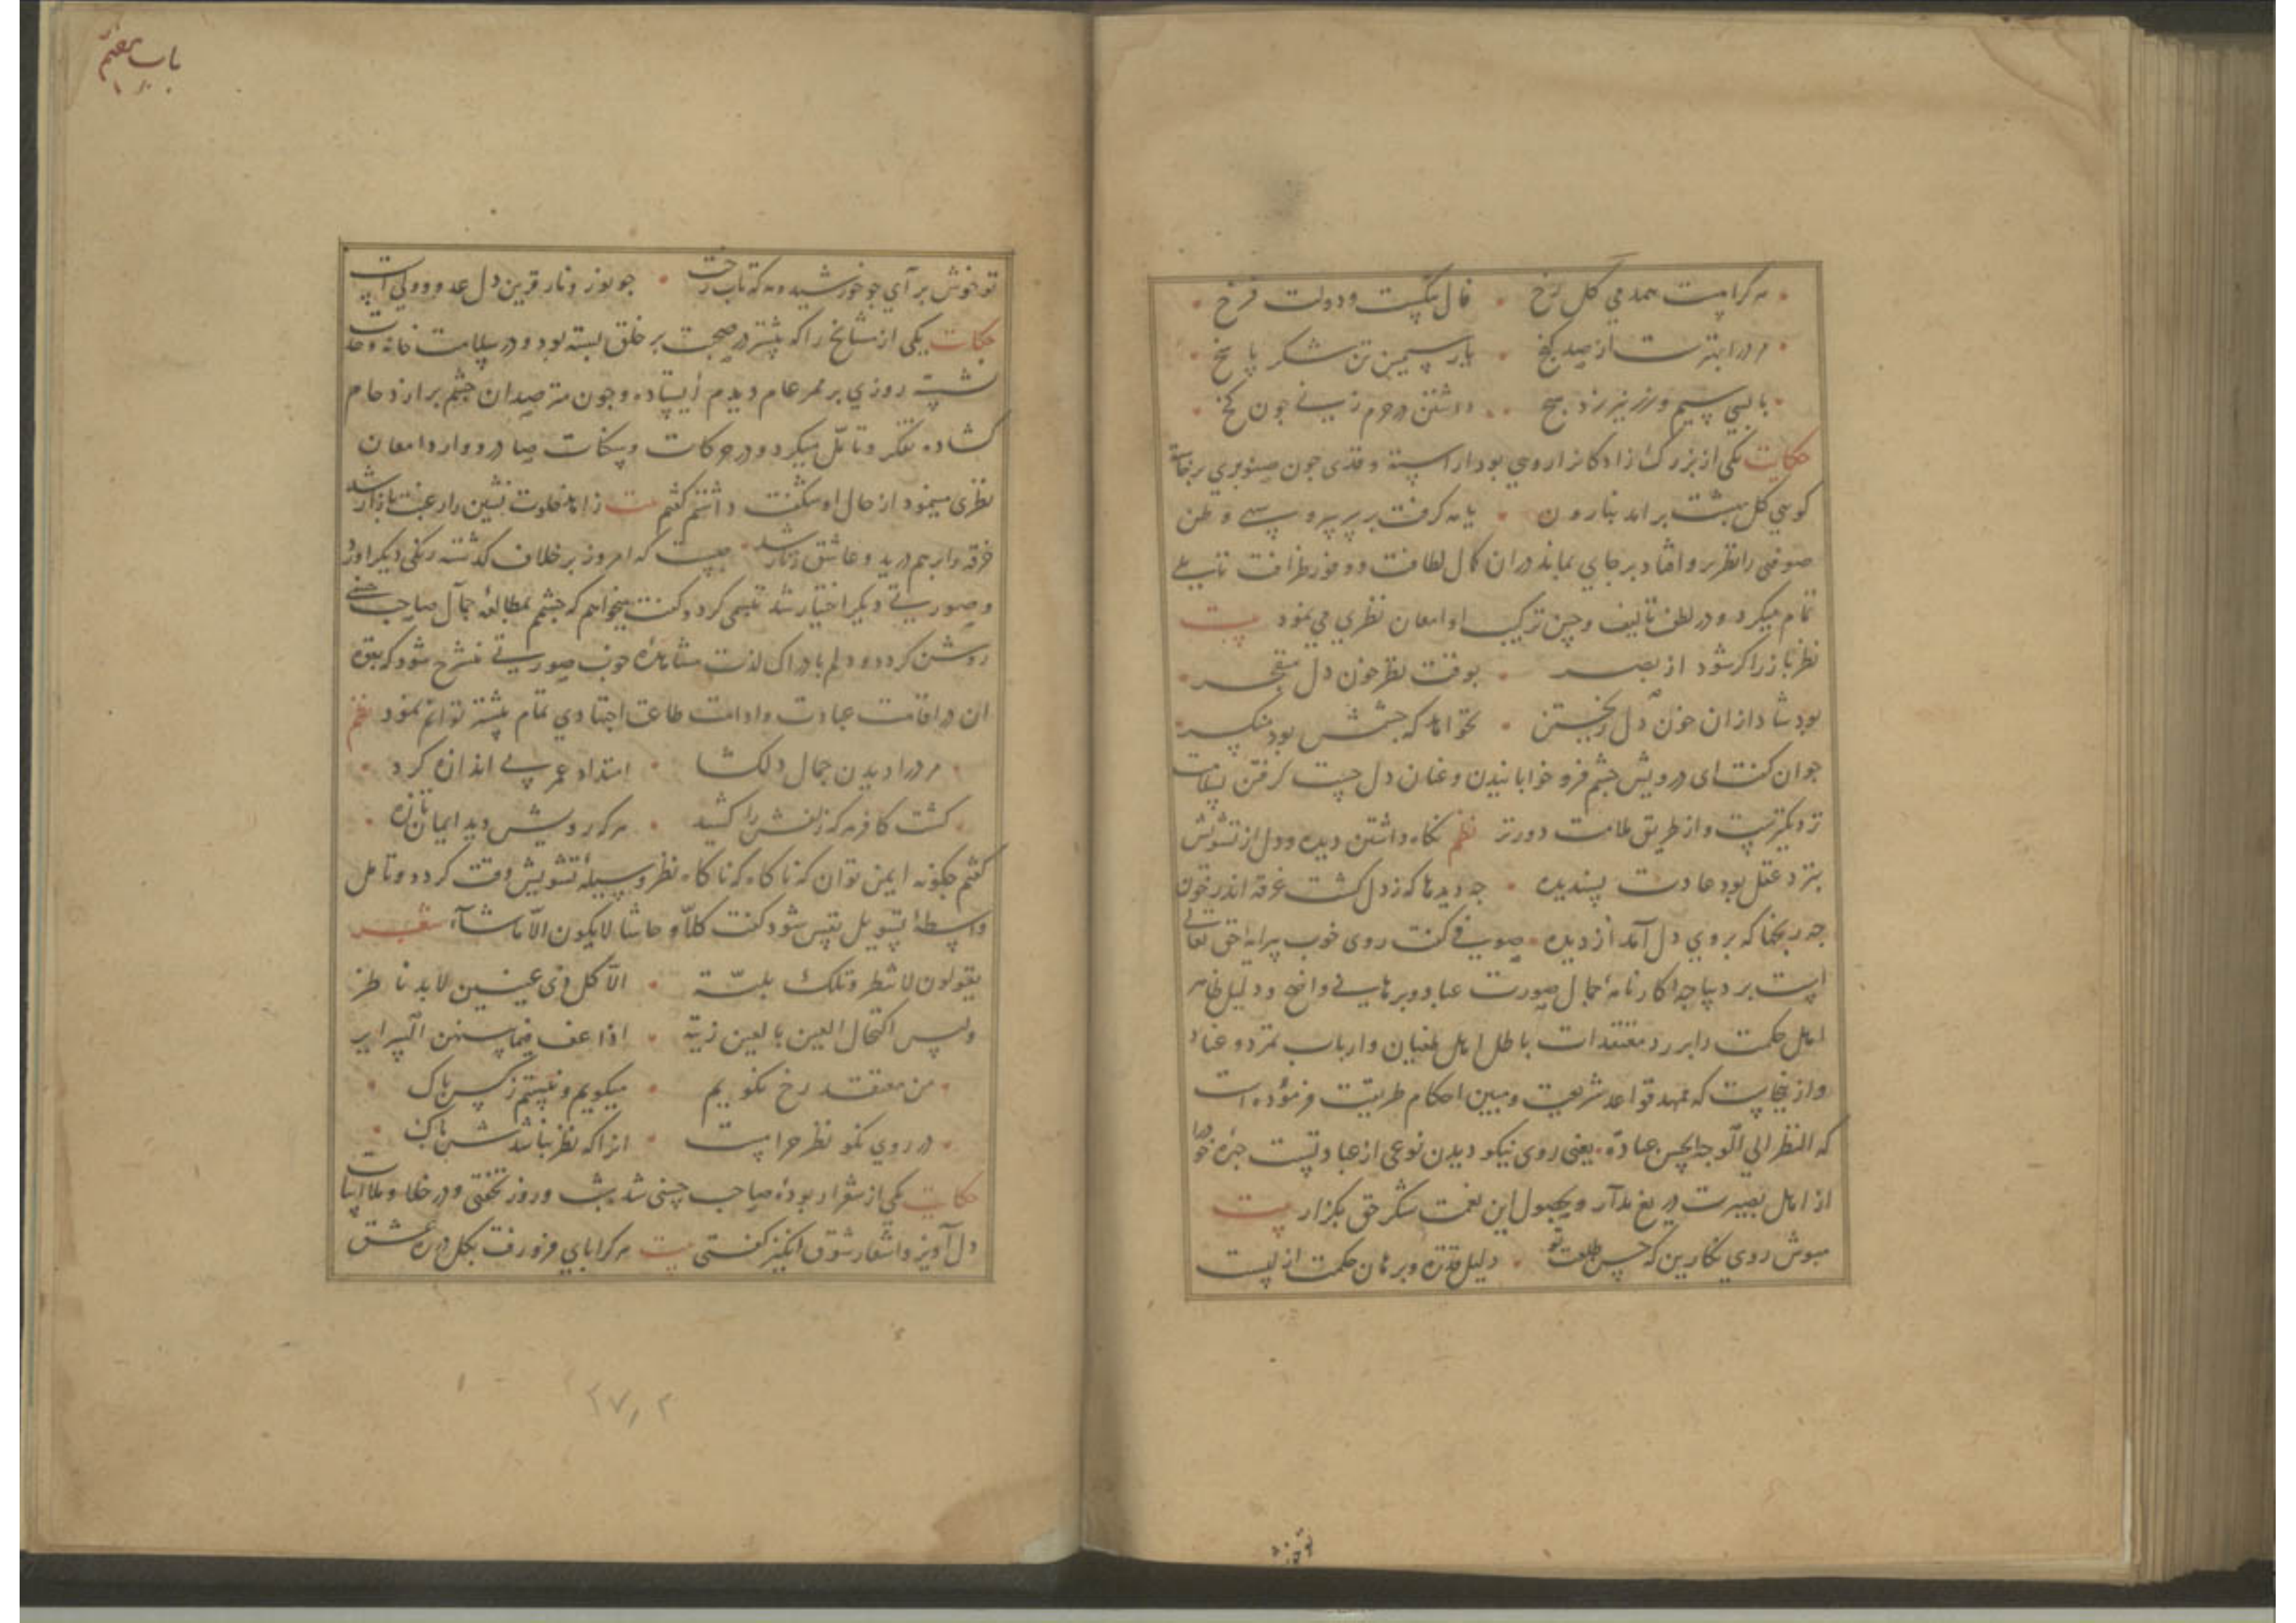 هرکرا هست همدمی گل رخ • فال نیکست و دولت فرخ
مرورا بهترست از صد گنج • یار سیمین تن شکر پاسخ
با بسی سیم و زر نیرزد هیچ • داشتن در حرم زنی چون
حکایت یکی از بزرگ زادگان را روی بود آراسته و قدی چون صنوبری برخاسته
کویی گل بهشت برآمد بنارون • یا مه گرفت بر سر سرو سهی وطن
صوفی را نظر برو افتاد بر جای بماند در آن کمال لطافت و وفور ظرافت تاملی
تمام میکرد و در لطف تالیف و حسن ترکیب او امعان نظری می نمود بیت
نظرباز را کر شود از بصر • بوقت نظر خون دل منفجر
بود شاد از آن خون دل ریختن • نخواهد که چشمش بود منکسر
جوان کفت ای درویش چشم فرو خوابانیدن و عنان دل چست کرفتن بسلامت
نزدیکترست و از طریق ملامت دورتر نظم نکاه داشتن دیده و دل از تشویش
بنزد عقل بود عادت پسندیده • چه دیدها که ز دل کشت غرقه اندر خون
چه رنجها که بروی دل آمد از دیده • صوفی کفت روی خوب پیرایه حق تعالی
است بر دیباجه کارنامه جمال صورت عباد و برهانی واضح و دلیل ظاهر
اهل حکمت را بر رد معتقدات باطل اهل طغیان و ارباب تمرد و عناد
و ازینجاست که ممهد قواعد شریعت و مبین احکام طریقت فرموده است
که النظر الی الوجه الحسن عبادة • یعنی روی نیکو دیدن نوعی از عبادتست چهره خود را
از اهل بصیرت دریغ مدار و بحصول این نعمت شکر حق بکزار بیت
مپوش روی نکارین که حسن طلعت تو • دلیل قدرت و برهان حکمت ازلیست
تو خوش
باب هفتم
تو خوش برآی چو خورشید و مه که تاب رخت • چو نور و نار قرین دل عدو و ولی است
حکایت یکی از مشایخ را که پیشتر در صحبت بر خلق بسته بود و در سلامت خانه وحدت
نشسته روزی بر ممر عام دیدم ایستاده و چون مترصدان چشم بر ازدحام
کشاده تفکر و تامل میکرد و در حرکات و سکنات صادر و وارد امعان
نظری مینمود از حال او شکفت داشتم کفتم بیت زاهد خلوت نشین را رغبت بازار شد
خرقه را بر هم درید و عاشق زنار شد • چیست که امروز بر خلاف کذشته رنکی دیکر آورد
و صورتی دیکر اختیار شد تبسمی کرد و کفت میخواهم که چشم بمطالعه جمال صاحب حسنی
روشن کردد و دلم بادراک لذت مشاهده خوب صورتی منشرح شود که بقوه
آن در اقامت عبادت و ادامت طاعت اجتهادی تمام پیشتر توانم نمود نظم
مر ورا دیدن جمال دلکشا • امتداد عمر بی اندازه کرد
کشت کافر هر که زلفش را کشید • هر که رویش دید ایمان تازه
کفتم چکونه ایمن توان که ناکاه که ناکاه نظر وسیله تشویش وقت کردد و تامل
واسطه تسویل نفس شود کفت کلا و حاشا لا یکون الا ماشاء شعر
یقولون لا تنظر وتلک بلیة • الا کل ذی عینین لابد ناظر
ولیس اکتحال العین بالعین ریبة • اذا عف فیما بینهن السرایر
من معتقد رخ نکویم • میکویم و نیستم ز کس باک
در روی نکو نظر حرامست • انرا که نظر نباشدش پاک
حکایت یکی از شعرا ربوده صاحب حسنی شد شب و روز نخفتی و در خلا و ملا ابیات
دل آویز و اشعار شوق انکیز کفتی بیت هر کرا پای فرو رفت بکل در ره عشق